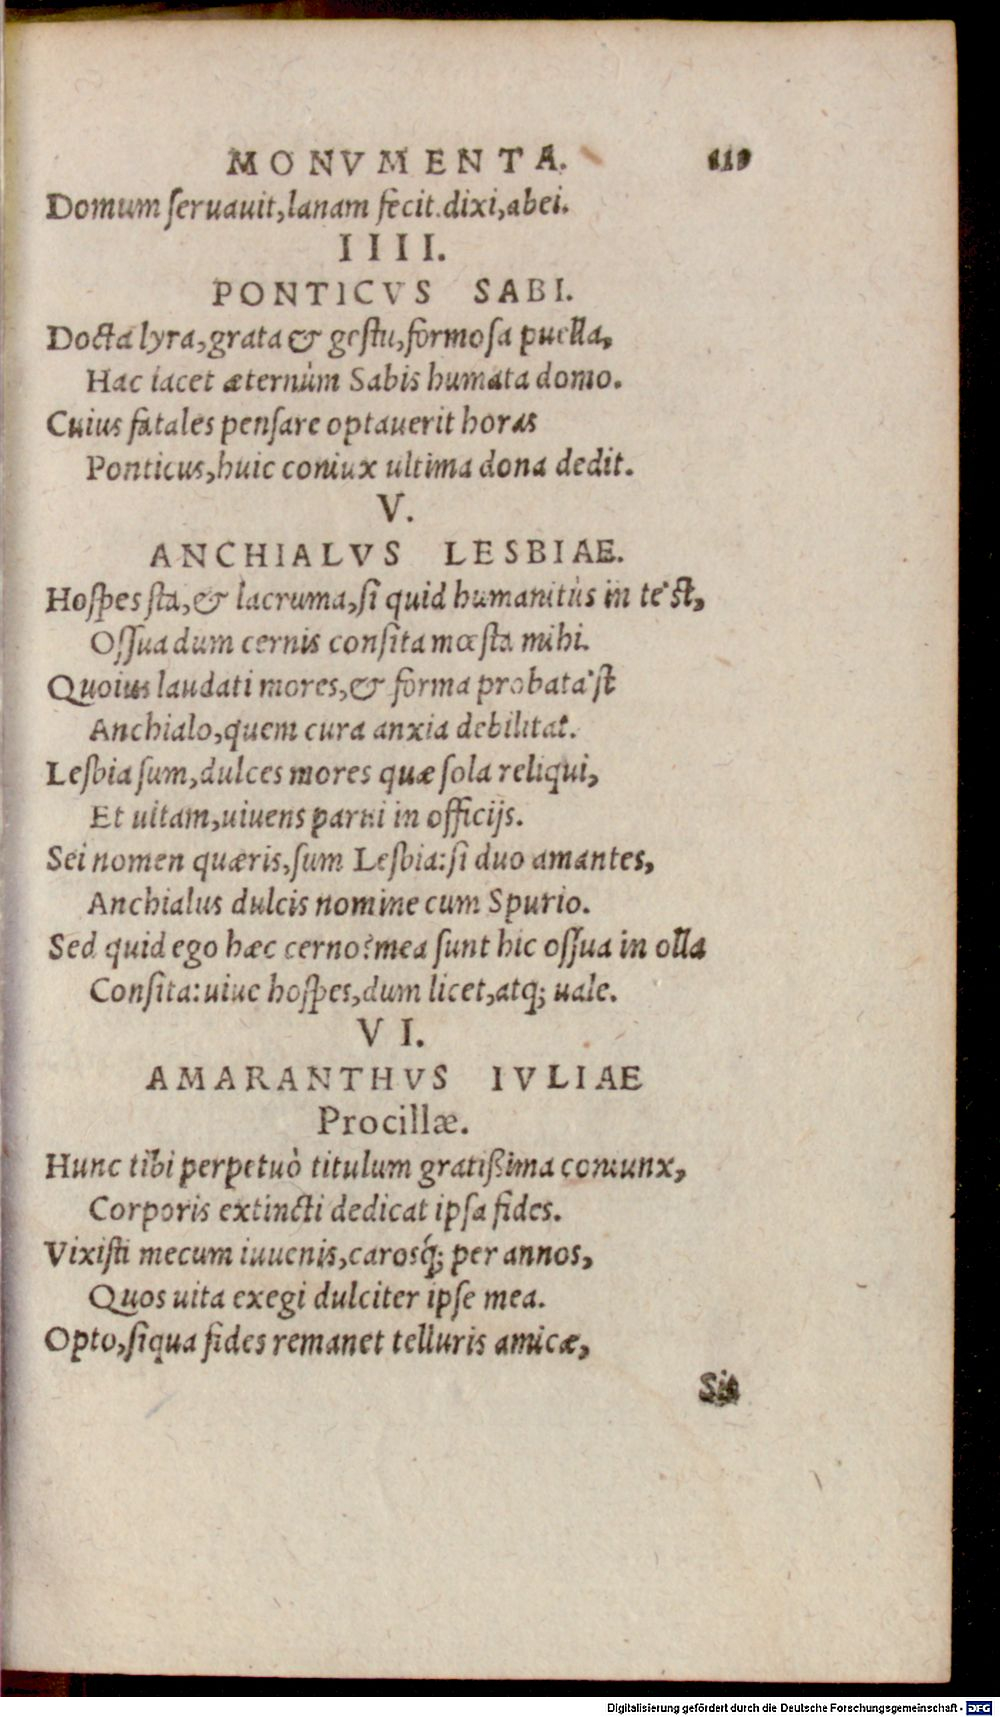 MONVMENTA. 119
Domum ſeruauit, lanam fecit. dixi, abei.
IIII.
PONTICVS SABI.
Docta lyra, grata & geſtu, formoſa puella,
Hac iacet æternùm Sabis humata domo.
Cuius fatales penſare optauerit horas
Ponticus, huic coniux ultima dona dedit.
V.
ANCHIALVS LESBIAE.
Hoſpes ſta, & lacruma, ſi quid humanitùs in te'ſt,
Oſſua dum cernis conſita mœſta mihi.
Quoius laudati mores, & forma probata'ſt
Anchialo, quem cura anxia debilitat.
Leſbia ſum, dulces mores quæ ſola reliqui,
Et uitam, uiuens parui in officijs.
Sei nomen quæris, ſum Leſbia: ſi duo amantes,
Anchialus dulcis nomine cum Spurio.
Sed quid ego hæc cerno? mea ſunt hic oſſua in olla
Conſita: uiue hoſpes, dum licet, atq; uale.
VI.
AMARANTHVS IVLIAE
Procillæ.
Hunc tibi perpetuò titulum gratißima coniunx,
Corporis extincti dedicat ipſa fides.
Vixiſti mecum iuuenis, carosq́; per annos,
Quos uita exegi dulciter ipſe mea.
Opto, ſiqua fides remanet telluris amicæ,
Sit
Digitalisierung gefördert durch die Deutsche Forschungsgemeinschaft - DFG